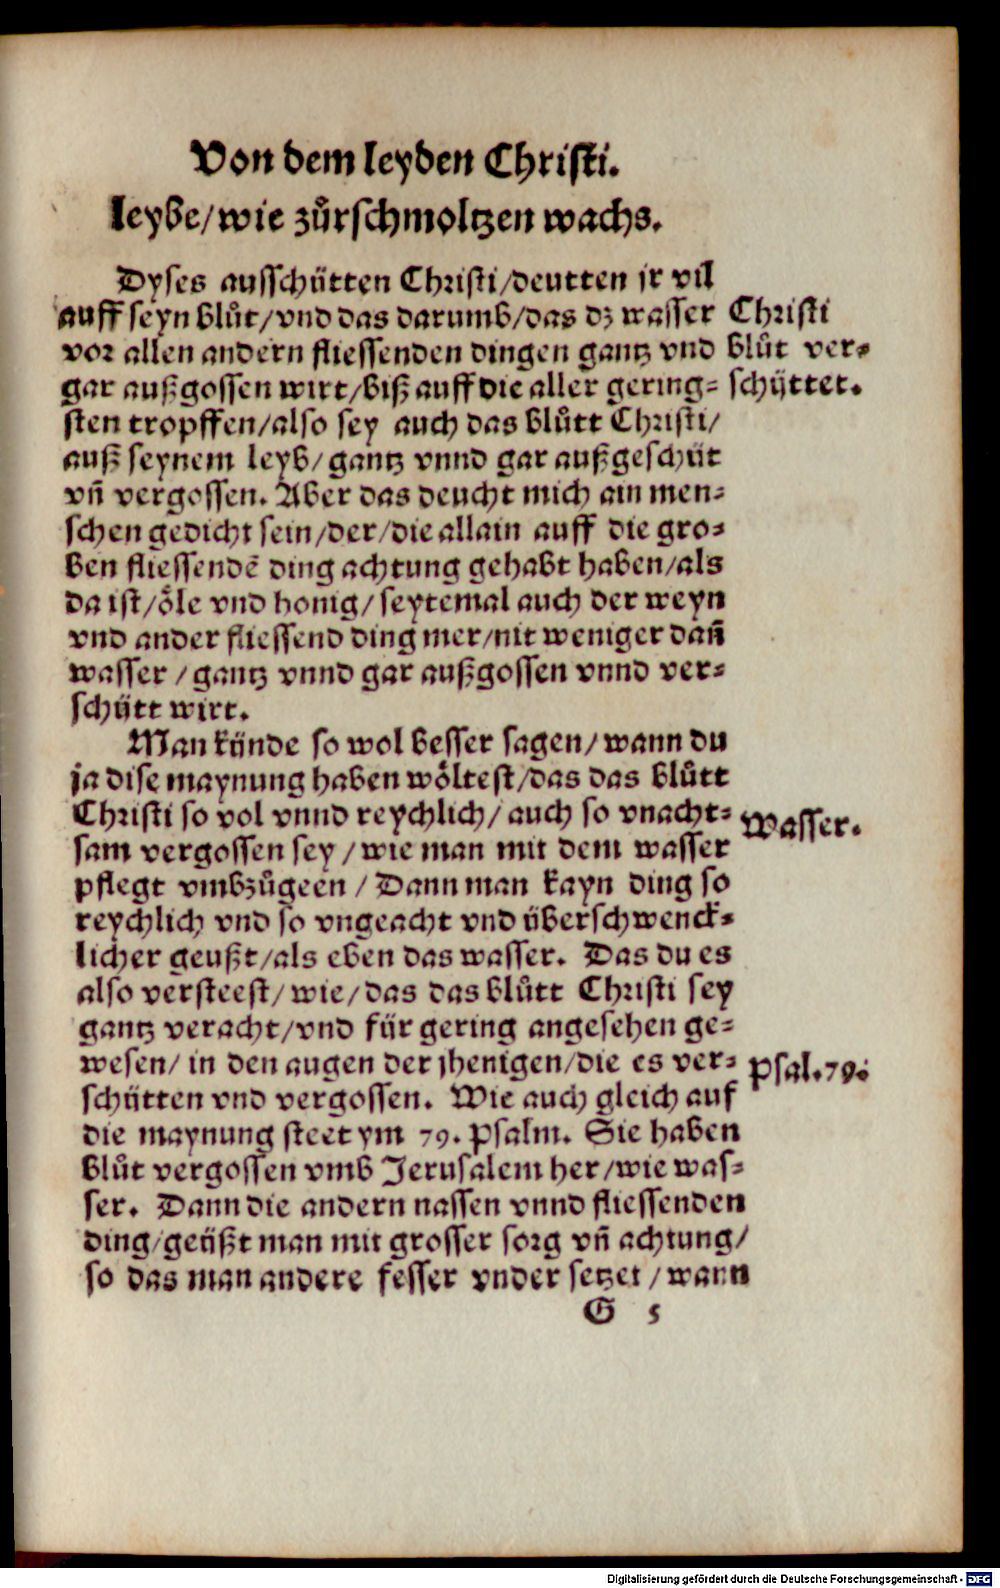 Von dem leyden Christi.
leybe/wie zůrschmoltzen wachs.
Dyses ausschütten Christi/deutten jr vil
auff seyn blůt/vnd das darumb/das dz wasser
vor allen andern fliessenden dingen gantz vnd
gar außgossen wirt/biß auff die aller gering-
sten tropffen/also sey auch das blůtt Christi/
auß seynem leyb/gantz vnnd gar außgeschüt
vñ vergossen. Aber das deucht mich ain men-
schen gedicht sein/der/die allain auff die gro-
ben fliessendē ding achtung gehabt haben/als
da ist/öle vnd honig/seytemal auch der weyn
vnd ander fliessend ding mer/nit weniger dañ
wasser/gantz vnnd gar außgossen vnnd ver-
schütt wirt.
Christi
blůt ver-
schüttet.
Man künde so wol besser sagen/wann du
ja dise maynung haben wöltest/das das blůtt
Christi so vol vnnd reychlich/auch so vnacht-
sam vergossen sey/wie man mit dem wasser
pflegt vmbzůgeen/Dann man kayn ding so
reychlich vnd so vngeacht vnd überschwenck-
licher geußt/als eben das wasser. Das du es
also versteest/wie/das das blůtt Christi sey
gantz veracht/vnd für gering angesehen ge-
wesen/in den augen der jhenigen/die es ver-
schütten vnd vergossen. Wie auch gleich auf
die maynung steet ym 79. Psalm. Sie haben
blůt vergossen vmb Jerusalem her/wie was-
ser. Dann die andern nassen vnnd fliessenden
ding/geüßt man mit grosser sorg vñ achtung/
so das man andere fesser vnder setzet/wann
Wasser.
Psal.79.
G 5
Digitalisierung gefördert durch die Deutsche Forschungsgemeinschaft - DFG